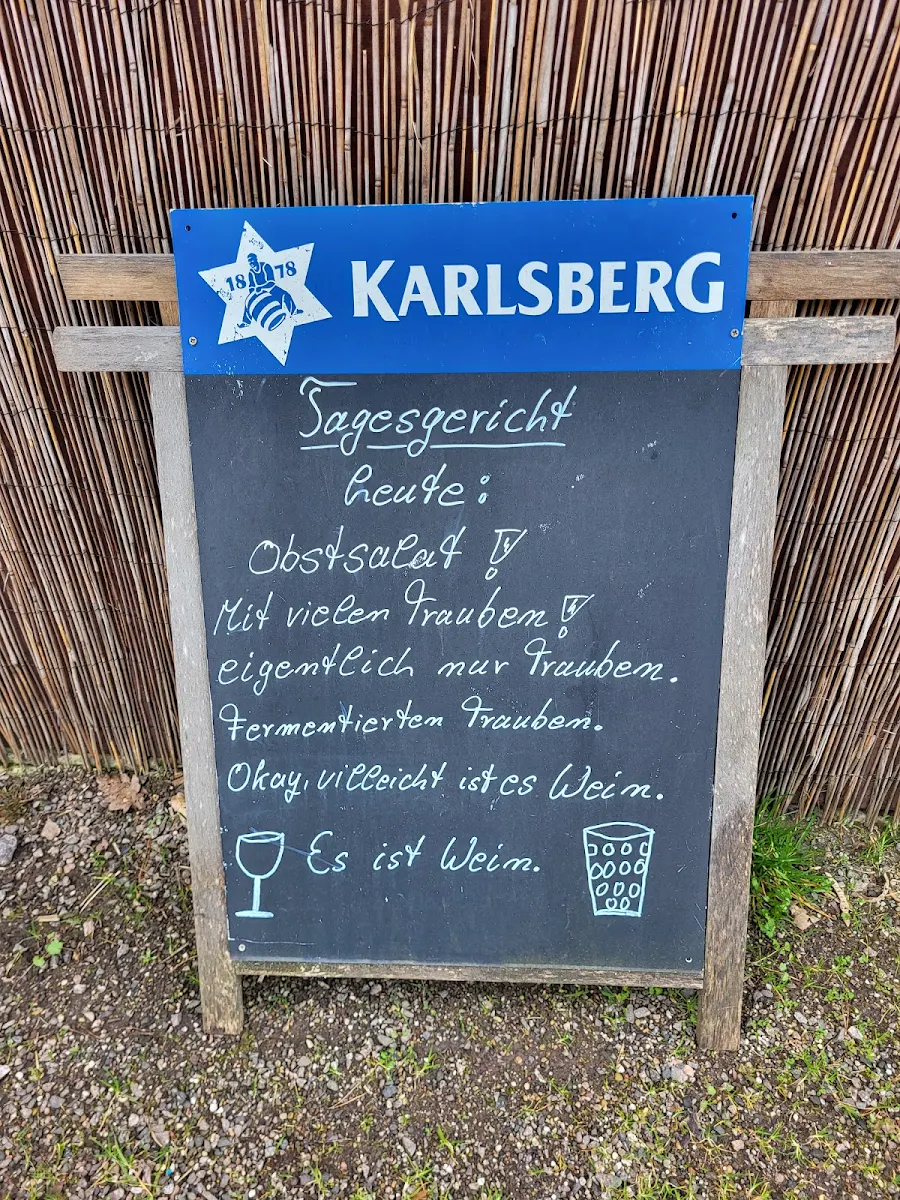 1878 KARLSBERG
Tagesgericht
heute:
Obstsalat!
Mit vielen Trauben!
eigentlich nur Trauben.
Fermentierten Trauben.
Okay, villeicht ist es Wein.
Es ist Wein.